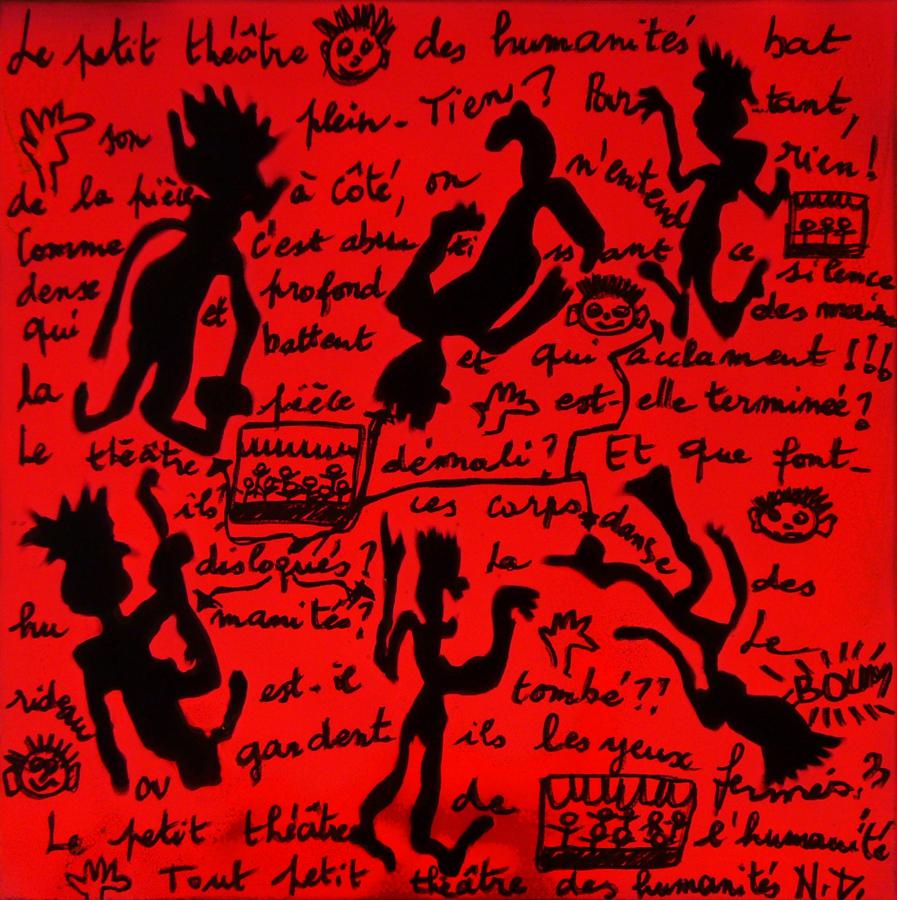 Le petit théâtre des humanités bat
son plein - Tien ? Pour tant,
de la pièce à côté, on n'entend rien !
Comme c'est abru ti ss ant ce silence
dense et profond des mains
qui battent et qui acclament !!!
La pièce est-elle terminée ?
Le théâtre démoli ? Et que font-
ils ? ces corps
disloqués ? La danse des
hu manités ? Le
rideau est-il tombé ?? BOUM
ou gardent ils les yeux fermés ??
Le petit théâtre de l'humanité
Tout petit théâtre des humanités N.D.